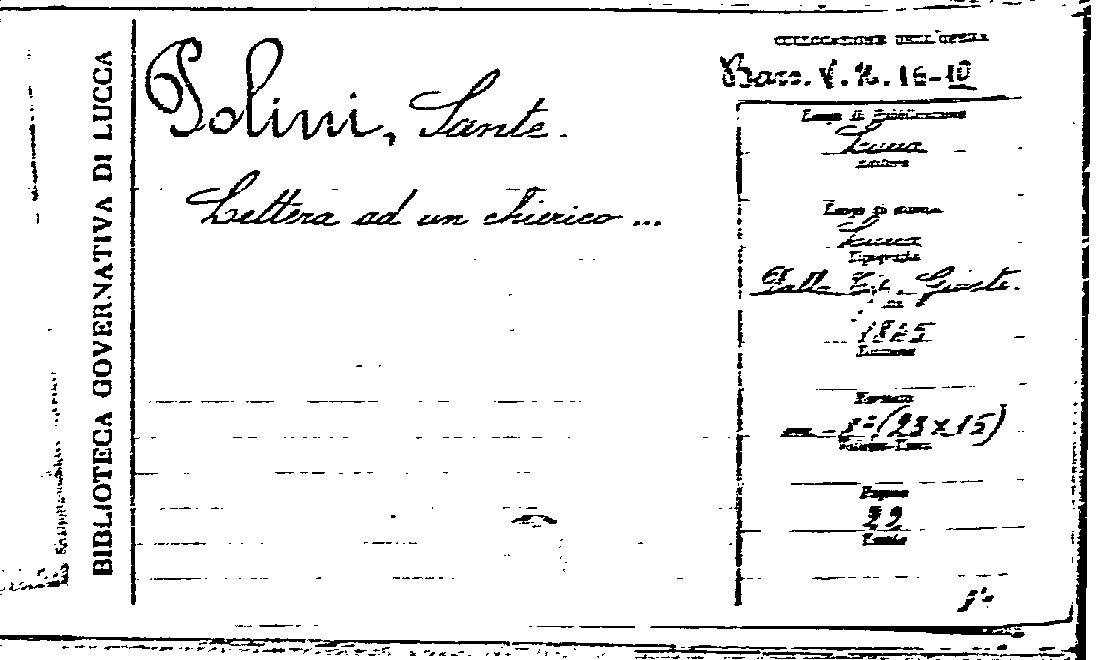 BIBLIOTECA GOVERNATIVA DI LUCCA
Polini, Sante.
Lettera ad un chierico ...
COLLOCAZIONE DELL'OPERA
16-10
Luogo di Pubblicazione
Lucca
Editore
Luogo di stampa
Lucca
Tipografia
Dalla Tip. Giusti.
Formato
8° (23x15)
Pagine
22